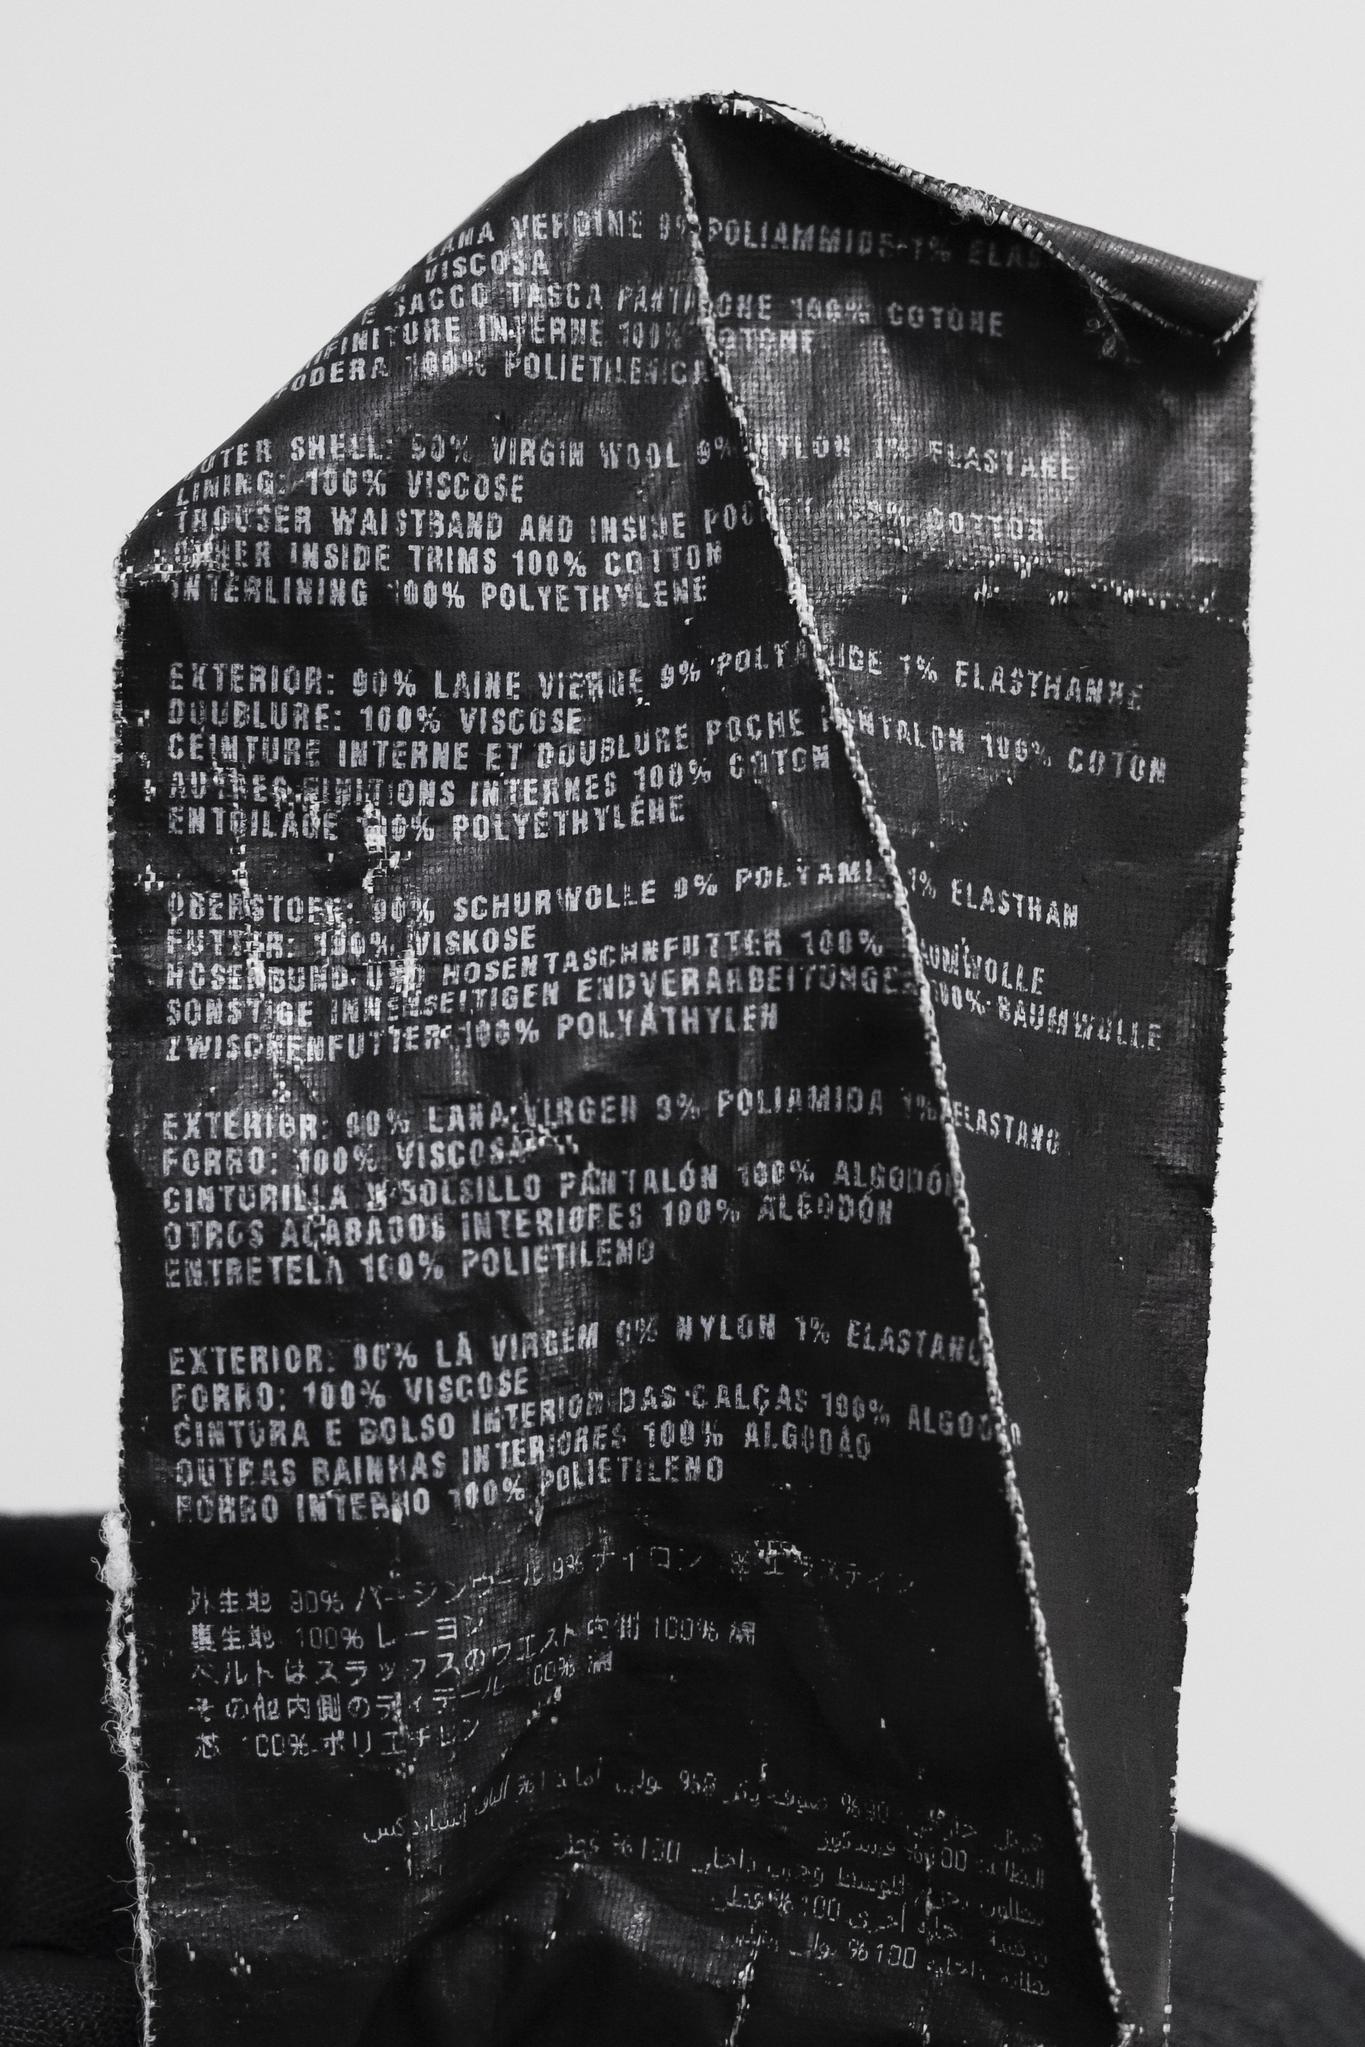 LANA VERGINE 9% POLIAMMIDE 1% ELAS
VISCOSA
E SACCO TASCA PANT CHE 100% COTONE
IFINITURE INTERNE 100% COTONE
FODERA 100% POLIETILENICA
OUTER SHELL: 90% VIRGIN WOOL 9% NYLON 1% ELASTANE
LINING: 100% VISCOSE
TROUSER WAISTBAND AND INSIDE POCKET 100% COTTON
OTHER INSIDE TRIMS 100% COTTON
INTERLINING 100% POLYETHYLENE
EXTERIOR: 90% LAINE VIERGE 9% POLYAMIDE 1% ELASTHANNE
DOUBLURE: 100% VISCOSE
CEINTURE INTERNE ET DOUBLURE POCHE PANTALON 100% COTON
AUTRES FINITIONS INTERNES 100% COTON
ENTOILAGE 100% POLYÉTHYLÉNE
OBERSTOFF: 90% SCHURWOLLE 9% POLYAMI 1% ELASTHAN
FUTTER: 100% VISKOSE
HOSENBUND UND HOSENTASCHNFUTTER 100% BAUMWOLLE
SONSTIGE INNENSEITIGEN ENDVERARBEITUNGE 100% BAUMWOLLE
ZWISCHENFUTTER 100% POLYÄTHYLEN
EXTERIOR: 90% LANA VIRGEN 9% POLIAMIDA 1% ELASTANO
FORRO: 100% VISCOSA
CINTURILLA Y BOLSILLO PANTALÓN 100% ALGODÓN
OTROS ACABADOS INTERIORES 100% ALGODÓN
ENTRETELA 100% POLIETILENO
EXTERIOR: 90% LÃ VIRGEM 9% NYLON 1% ELASTANO
FORRO: 100% VISCOSE
CINTURA E BOLSO INTERIOR DAS CALÇAS 100% ALGODÃO
OUTRAS BAINHAS INTERIORES 100% ALGODÃO
FORRO INTERNO 100% POLIETILENO
外生地 90% バージンウール 9% ナイロン
裏生地 100% レーヨン
ベルトはスラックスのウエスト内側 100% 綿
その他内側のディテール 100% 綿
芯 100% ポリエチレン
100%
داخلي 100% قطن
أخرى 100% قطن
100%